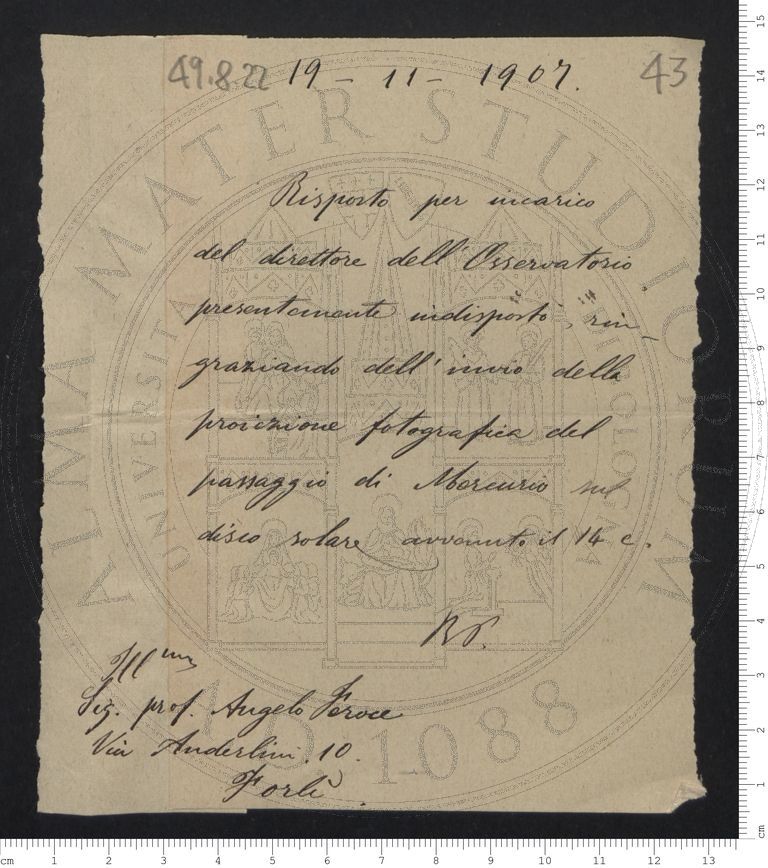 49.8.22 19 - 11 - 1907. 43
Risposto per incarico
del direttore dell'Osservatorio
presentemente indisposto, rin-
graziando dell'invio della
proiezione fotografica del
passaggio di Mercurio sul
disco solare avvenuto il 14 c.
Ill mo
Sig. prof. Angelo Feroce
Via Anderlini. 10.
Forlì
ALMA MATER STUDIORUM
UNIVERSITÀ BOLOGNA
A.D. 1088